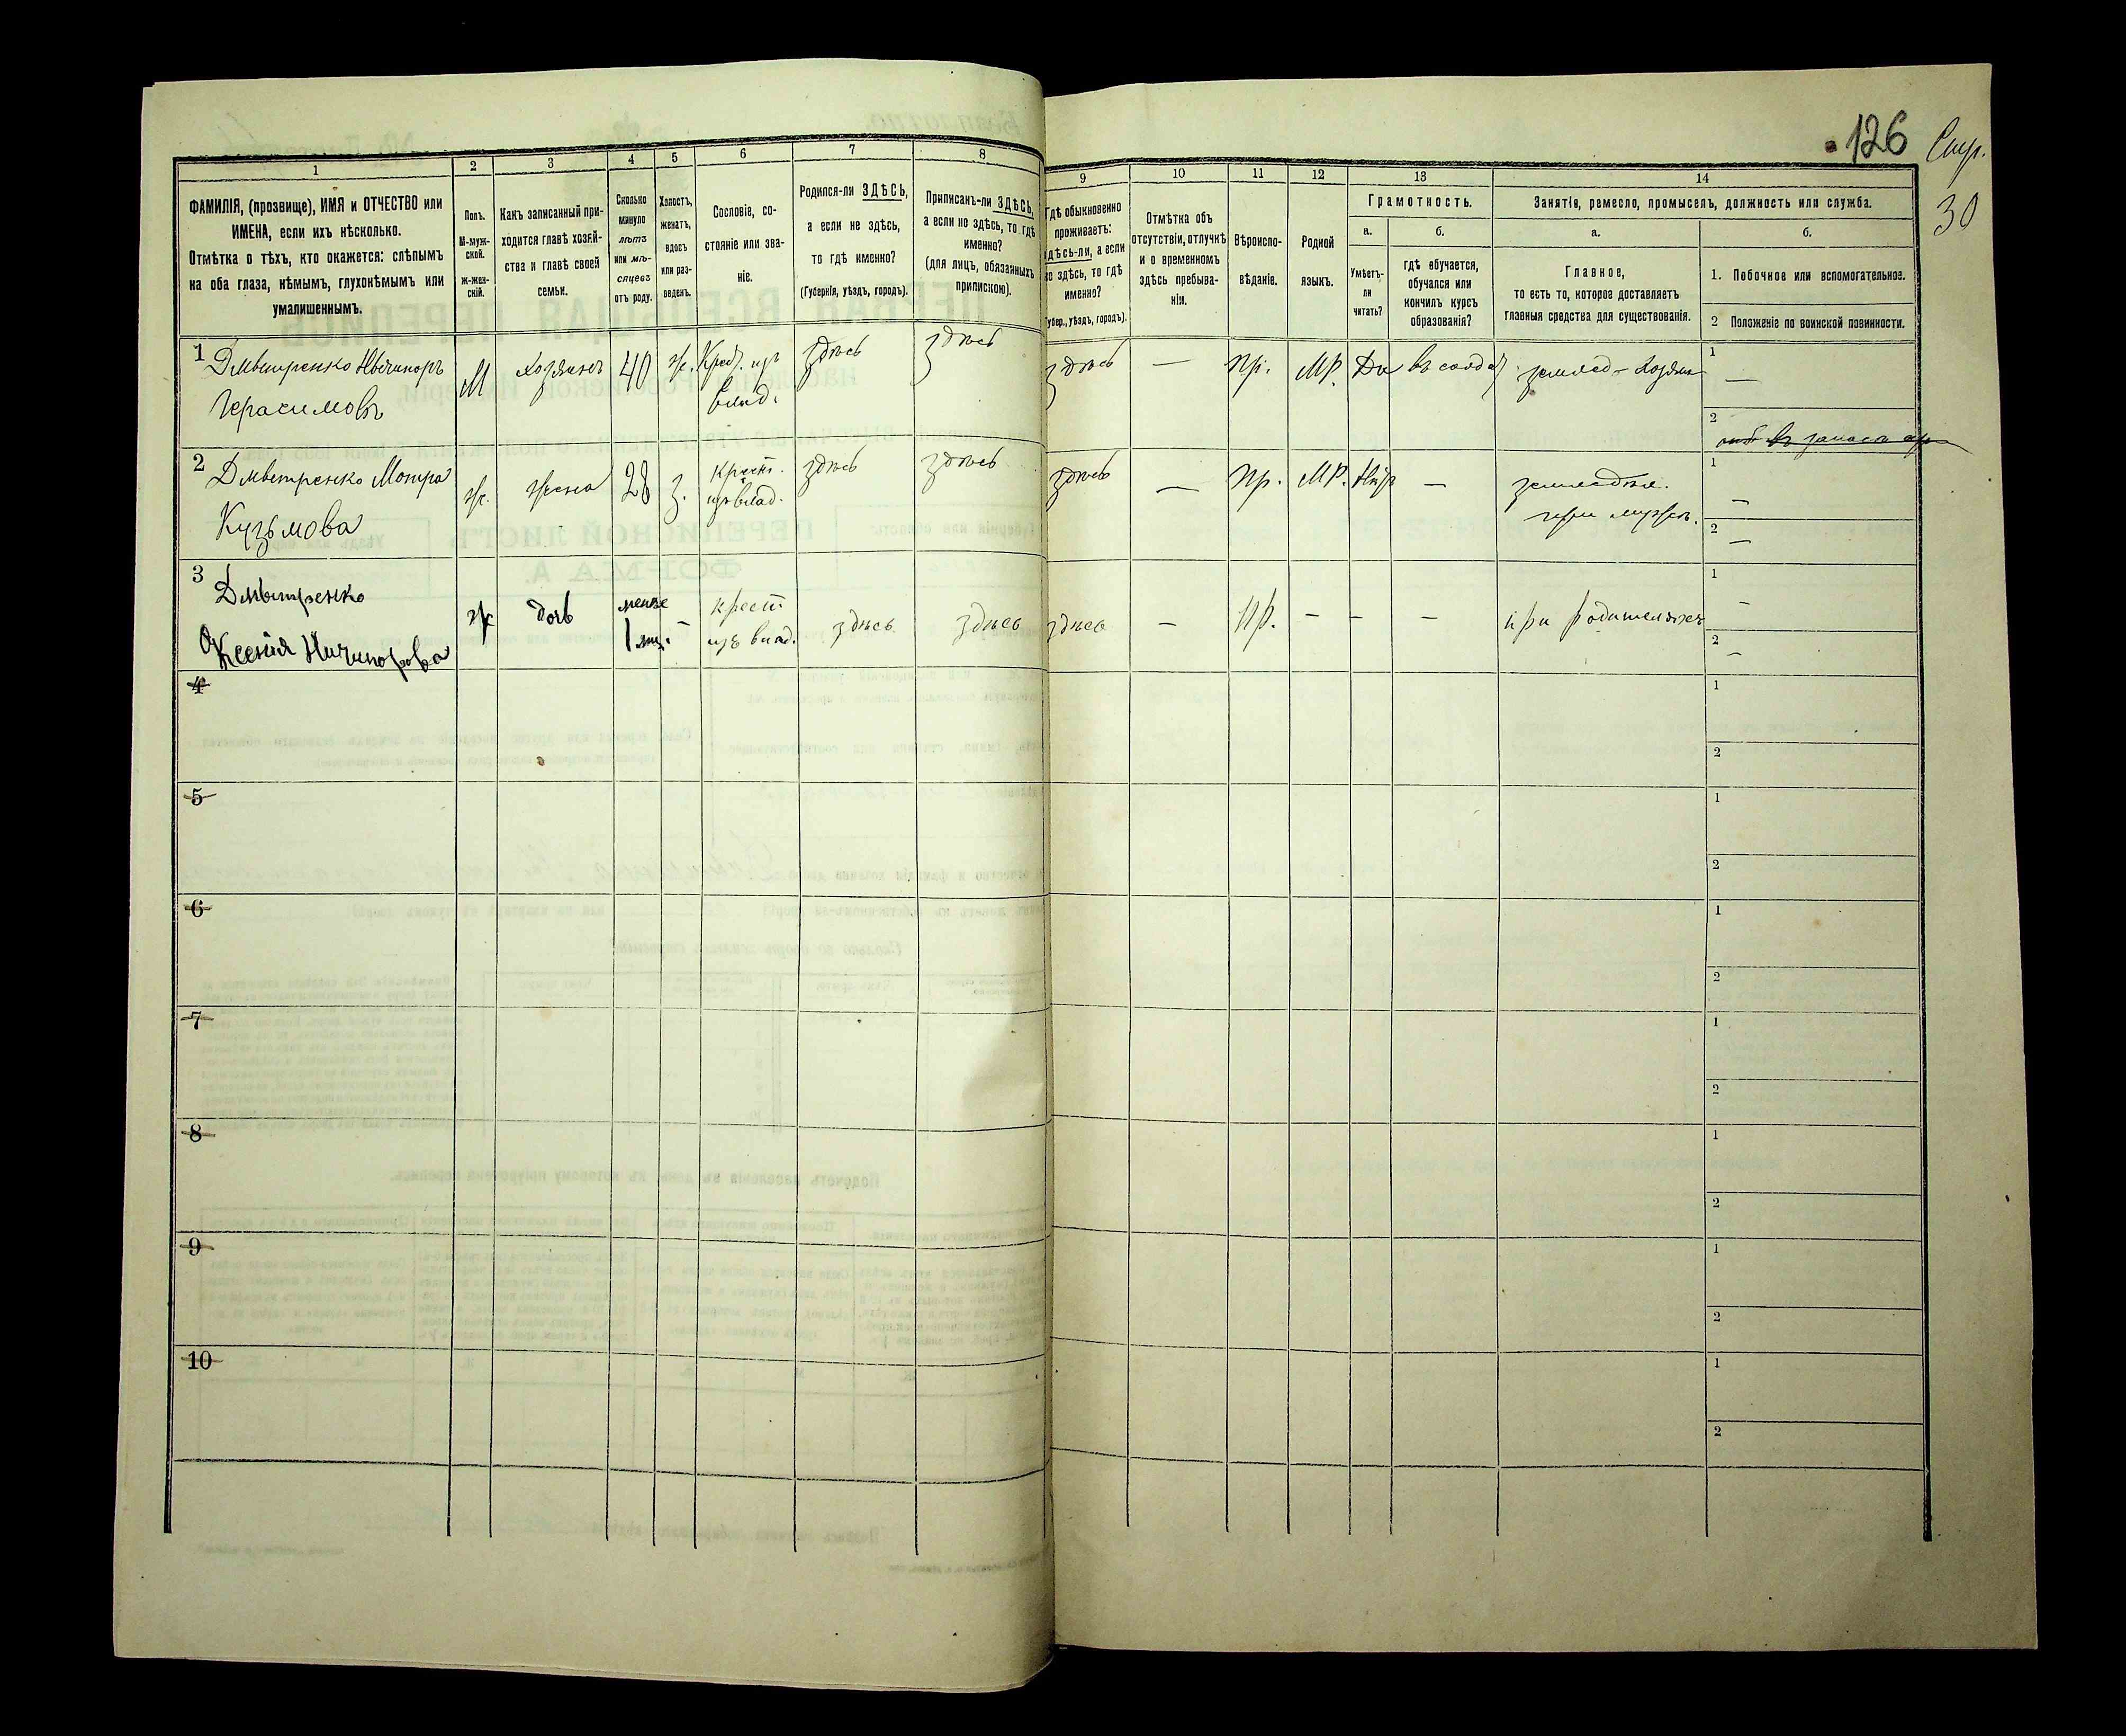 126 Стр.
30
1
2
3
4
5
6
7
8
9
10
11
12
13
14
ФАМИЛІЯ, (прозвище), ИМЯ и ОТЧЕСТВО или
ИМЕНА, если ихъ нѣсколько.
Отмѣтка о тѣхъ, кто окажется: слѣпымъ
на оба глаза, нѣмымъ, глухонѣмымъ или
умалишеннымъ.
Полъ.
М-муж-
ской.
Ж-жен-
скій.
Какъ записанный при-
ходится главѣ хозяй-
ства и главѣ своей
семьи.
Сколько
минуло
лѣтъ
или мѣ-
сяцевъ
отъ роду.
Холостъ,
женатъ,
вдовъ
или раз-
веденъ.
Сословіе, со-
стояніе или зва-
ніе.
Родился-ли ЗДѢСЬ,
а если не здѣсь,
то гдѣ именно?
(Губернія, уѣздъ, городъ).
Приписанъ-ли ЗДѢСЬ,
а если не здѣсь, то гдѣ
именно?
(для лицъ, обязанныхъ
припискою).
Гдѣ обыкновенно
проживаетъ:
здѣсь-ли, а если
не здѣсь, то гдѣ
именно?
(Губер., уѣздъ, городъ).
Отмѣтка объ
отсутствіи, отлучкѣ
и о временномъ
здѣсь пребыва-
нія.
Вѣроиспо-
вѣданіе.
Родной
языкъ.
Грамотность.
а.
Умѣетъ-
ли
читать?
б.
гдѣ обучается,
обучался или
кончилъ курсъ
образованія?
Занятіе, ремесло, промыселъ, должность или служба.
а.
Главное,
то есть то, которое доставляетъ
главныя средства для существованія.
б.
1. Побочное или вспомогательное.
2 Положеніе по воинской повинности.
1 Дмытренко Ничипоръ М Хозяинъ 40 ж. Крест. изъ здѣсь здѣсь здѣсь — Пр. МР. Да въ солдат землед - Хозяин 1 —
Герасимовъ влад. 2 въ запасѣ
2 Дмытренко Мотря ж. жена 28 з. крест. здѣсь здѣсь здѣсь — Пр. МР. Нѣтъ — земледѣл. 1 —
Кузьмова изъ влад. при мужѣ. 2 —
3 Дмытренко ж дочь менѣе крест. здѣсь здѣсь здѣсь — Пр. — — — при родителяхъ 1 —
Ксенія Ничипорова 1 мц. - изъ влад. 2 —
4 1
2
5 1
2
6 1
2
7 1
2
8 1
2
9 1
2
10 1
2